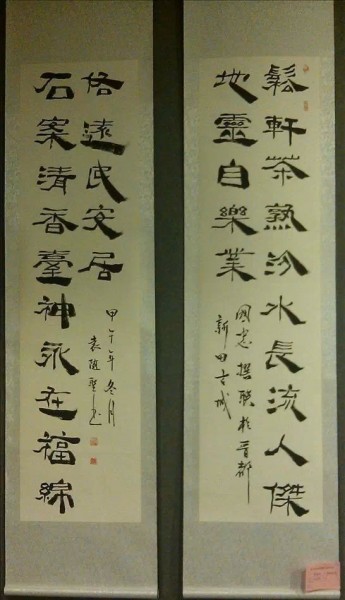 鬆軒茶熟汾水長流人傑
地靈自樂業
國忠撰联於晋都
新田古城
石案清香臺神永在福綿
恪遠民安居
甲午年冬月